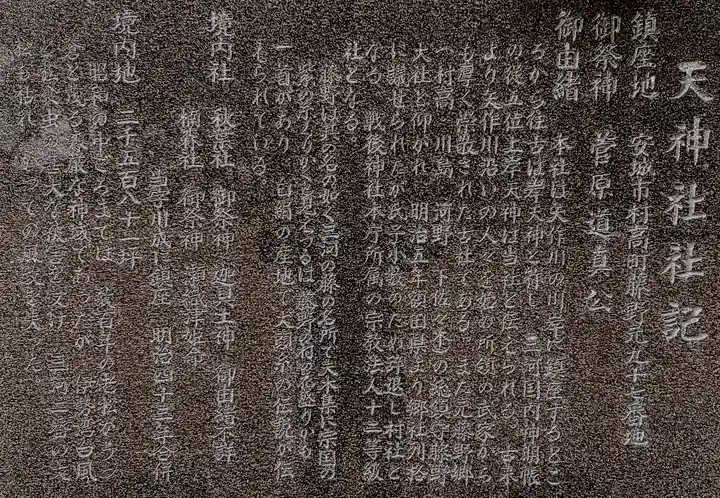 天神社社記
鎮座地 安城市村高町藤野元九十七番地
御祭神 菅原道真公
御由緒 本社は矢作川の川岸に鎮座するとこ
ろから往古は岸天神と称し 三河国内神明帳
の従五位上岸天神は当社と伝えられる 古来
より矢作川沿いの人々を始め所領の武家から
も厚く崇敬された古社である また元藤野郷
(村高 川島 河野 下佐々木)の総鎮守藤野
大社と仰がれ 明治五年額田県より郷社列格
に議せられたが氏子小数のため辞退し村社と
なる 戦後神社本庁所属の宗教法人十三等級
社となる
藤野は其の名の如く三河の藤の名所で夫木集に宗国の
紫の
藤野の村の花盛りかも
一首があり 白絹の産地で犬頭糸の伝説が伝
えられている
境内社 秋葉社 御祭神 迦具土神 御由緒不詳
楠森社 御祭神 瀬織津姫命
当字川成に鎮座 明治四十三年合併
境内地 二千五百八十一坪
昭和の中ごろまでは 数百年の老松がうっ
そうと茂る
な神域であったが 伊勢湾台風
と松食虫の
な被害を受け 三河一容の大
松も枯れ
ての